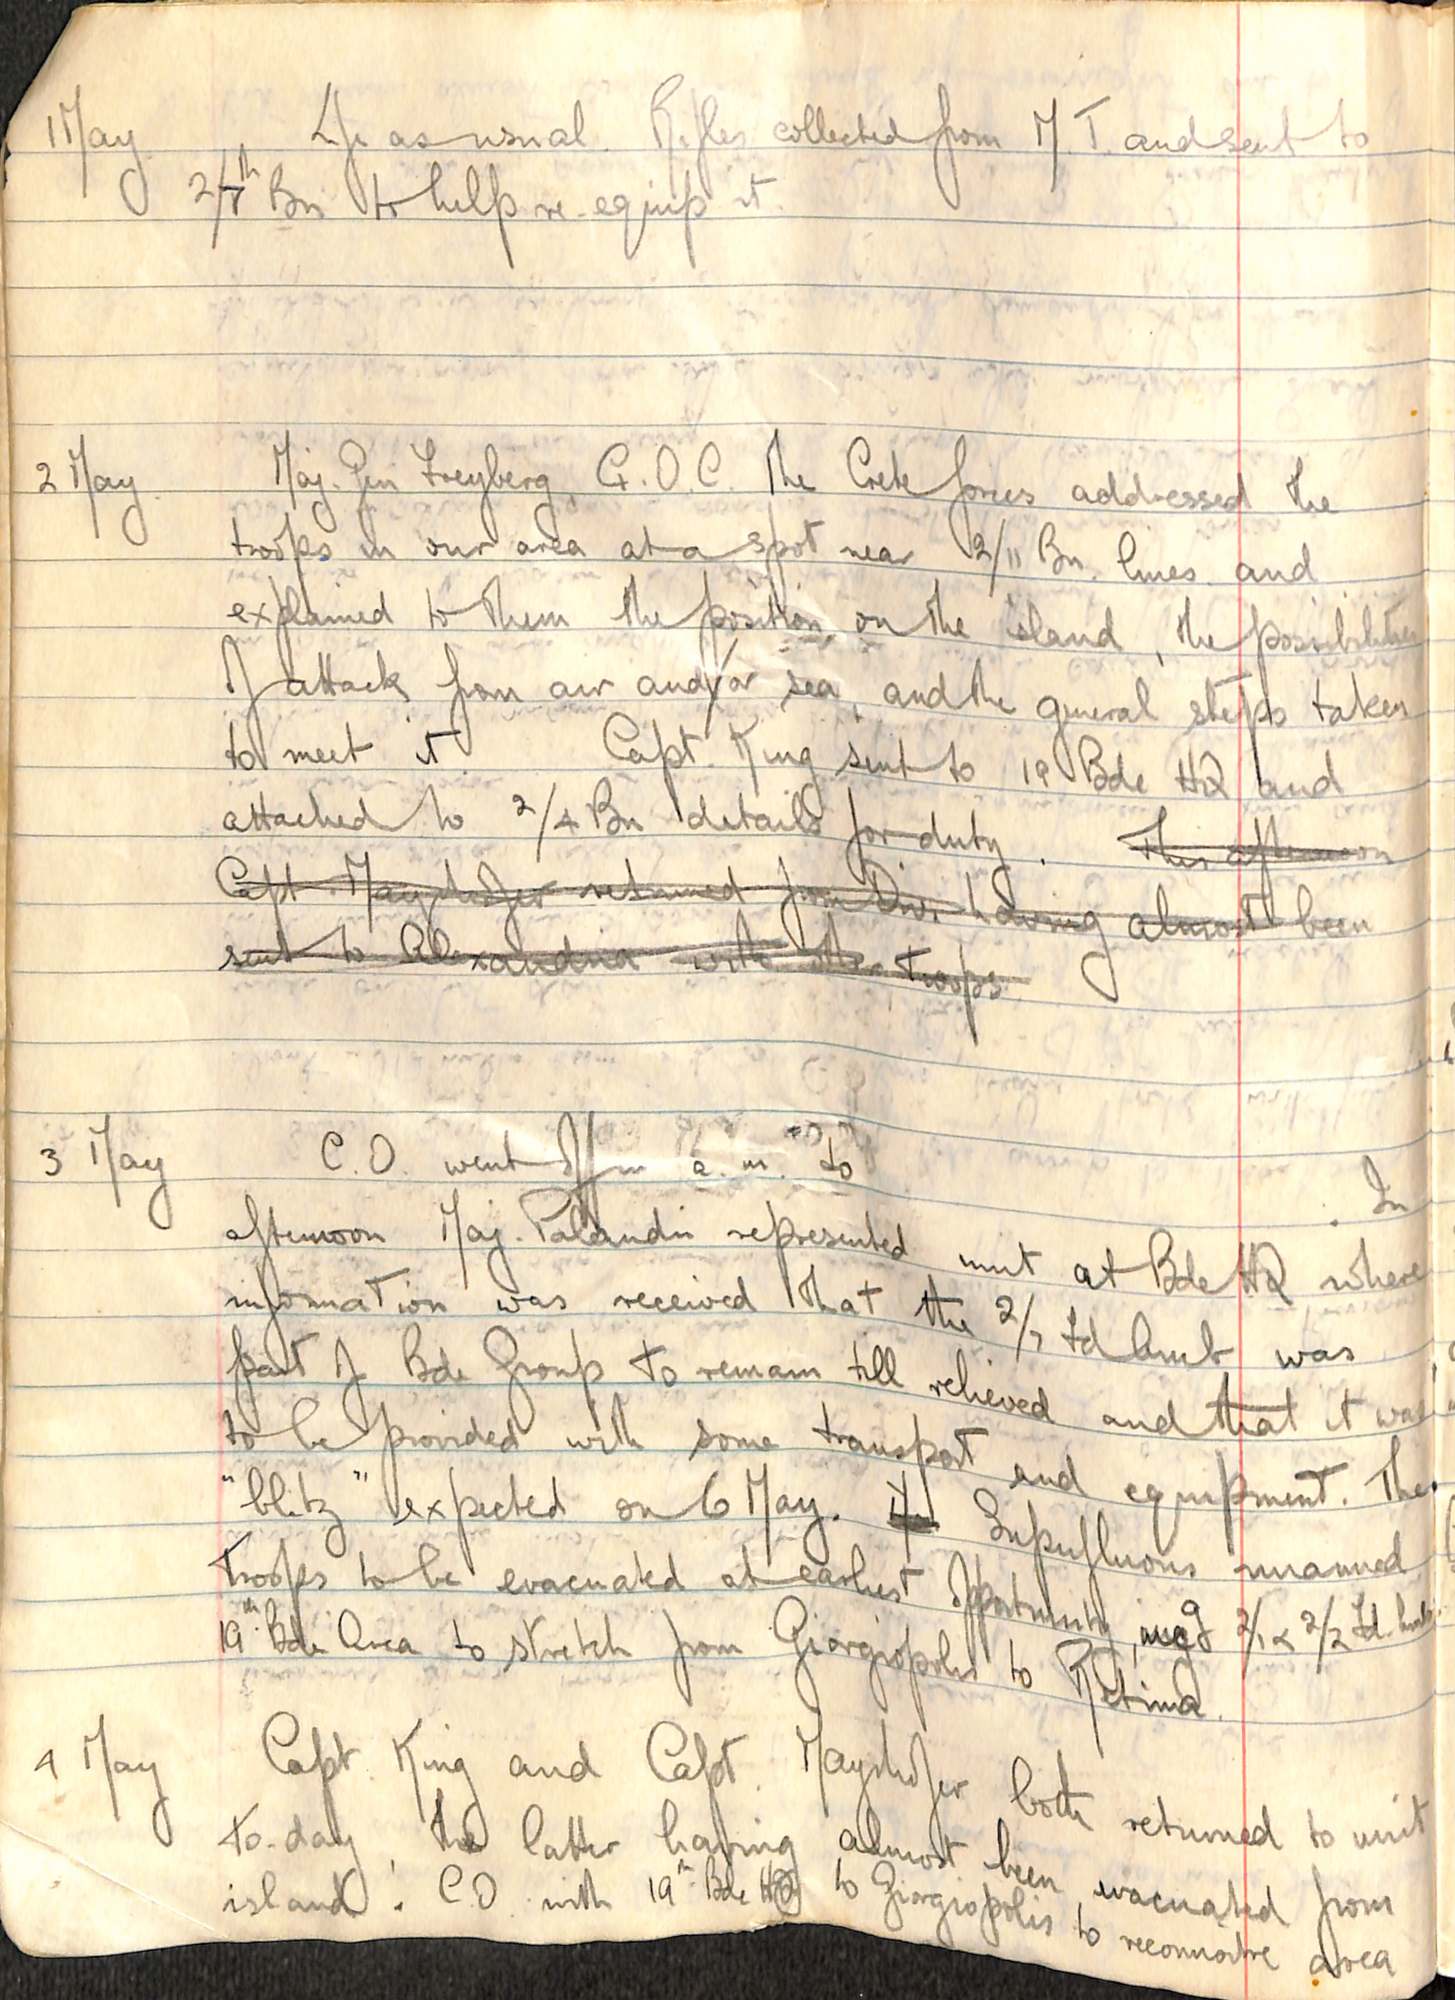 1 May Life as usual. Rifles collected from M.T. and sent to
2/7th Bn to help re-equip it.
2 May Maj. Gen Freyberg, G.O.C. the Crete forces addressed the
troops in our area at a spot near 2/11 Bn. lines and
explained to them the position on the island, the possibilities
of attack from air and/or sea, and the general steps taken
to meet it. Capt. King sent to 19 Bde HQ and
attached to 2/4 Bn details for duty. This afternoon
Capt. Mayrhofer returned from Div. having almost been
sent to Alexandria with other troops
3 May C.O. went off in a.m. to . In
afternoon Maj. Palandri represented unit at Bde HQ where
information was received that the 2/7 Fd Amb was
part of Bde Group to remain till relieved and that it was
to be provided with some transport and equipment. The
"blitz" expected on 6 May. Superfluous unarmed
troops to be evacuated at earliest opportunity, incg 2/1 & 2/2 Fd. Ambs.
19th Bde Area to stretch from Giorgiopolis to Retimo.
4 May Capt. King and Capt. Mayrhofer both returned to unit
to-day, the latter having almost been evacuated from
island. CO with 19th Bde HQ to Giorgiopolis to reconnoitre area